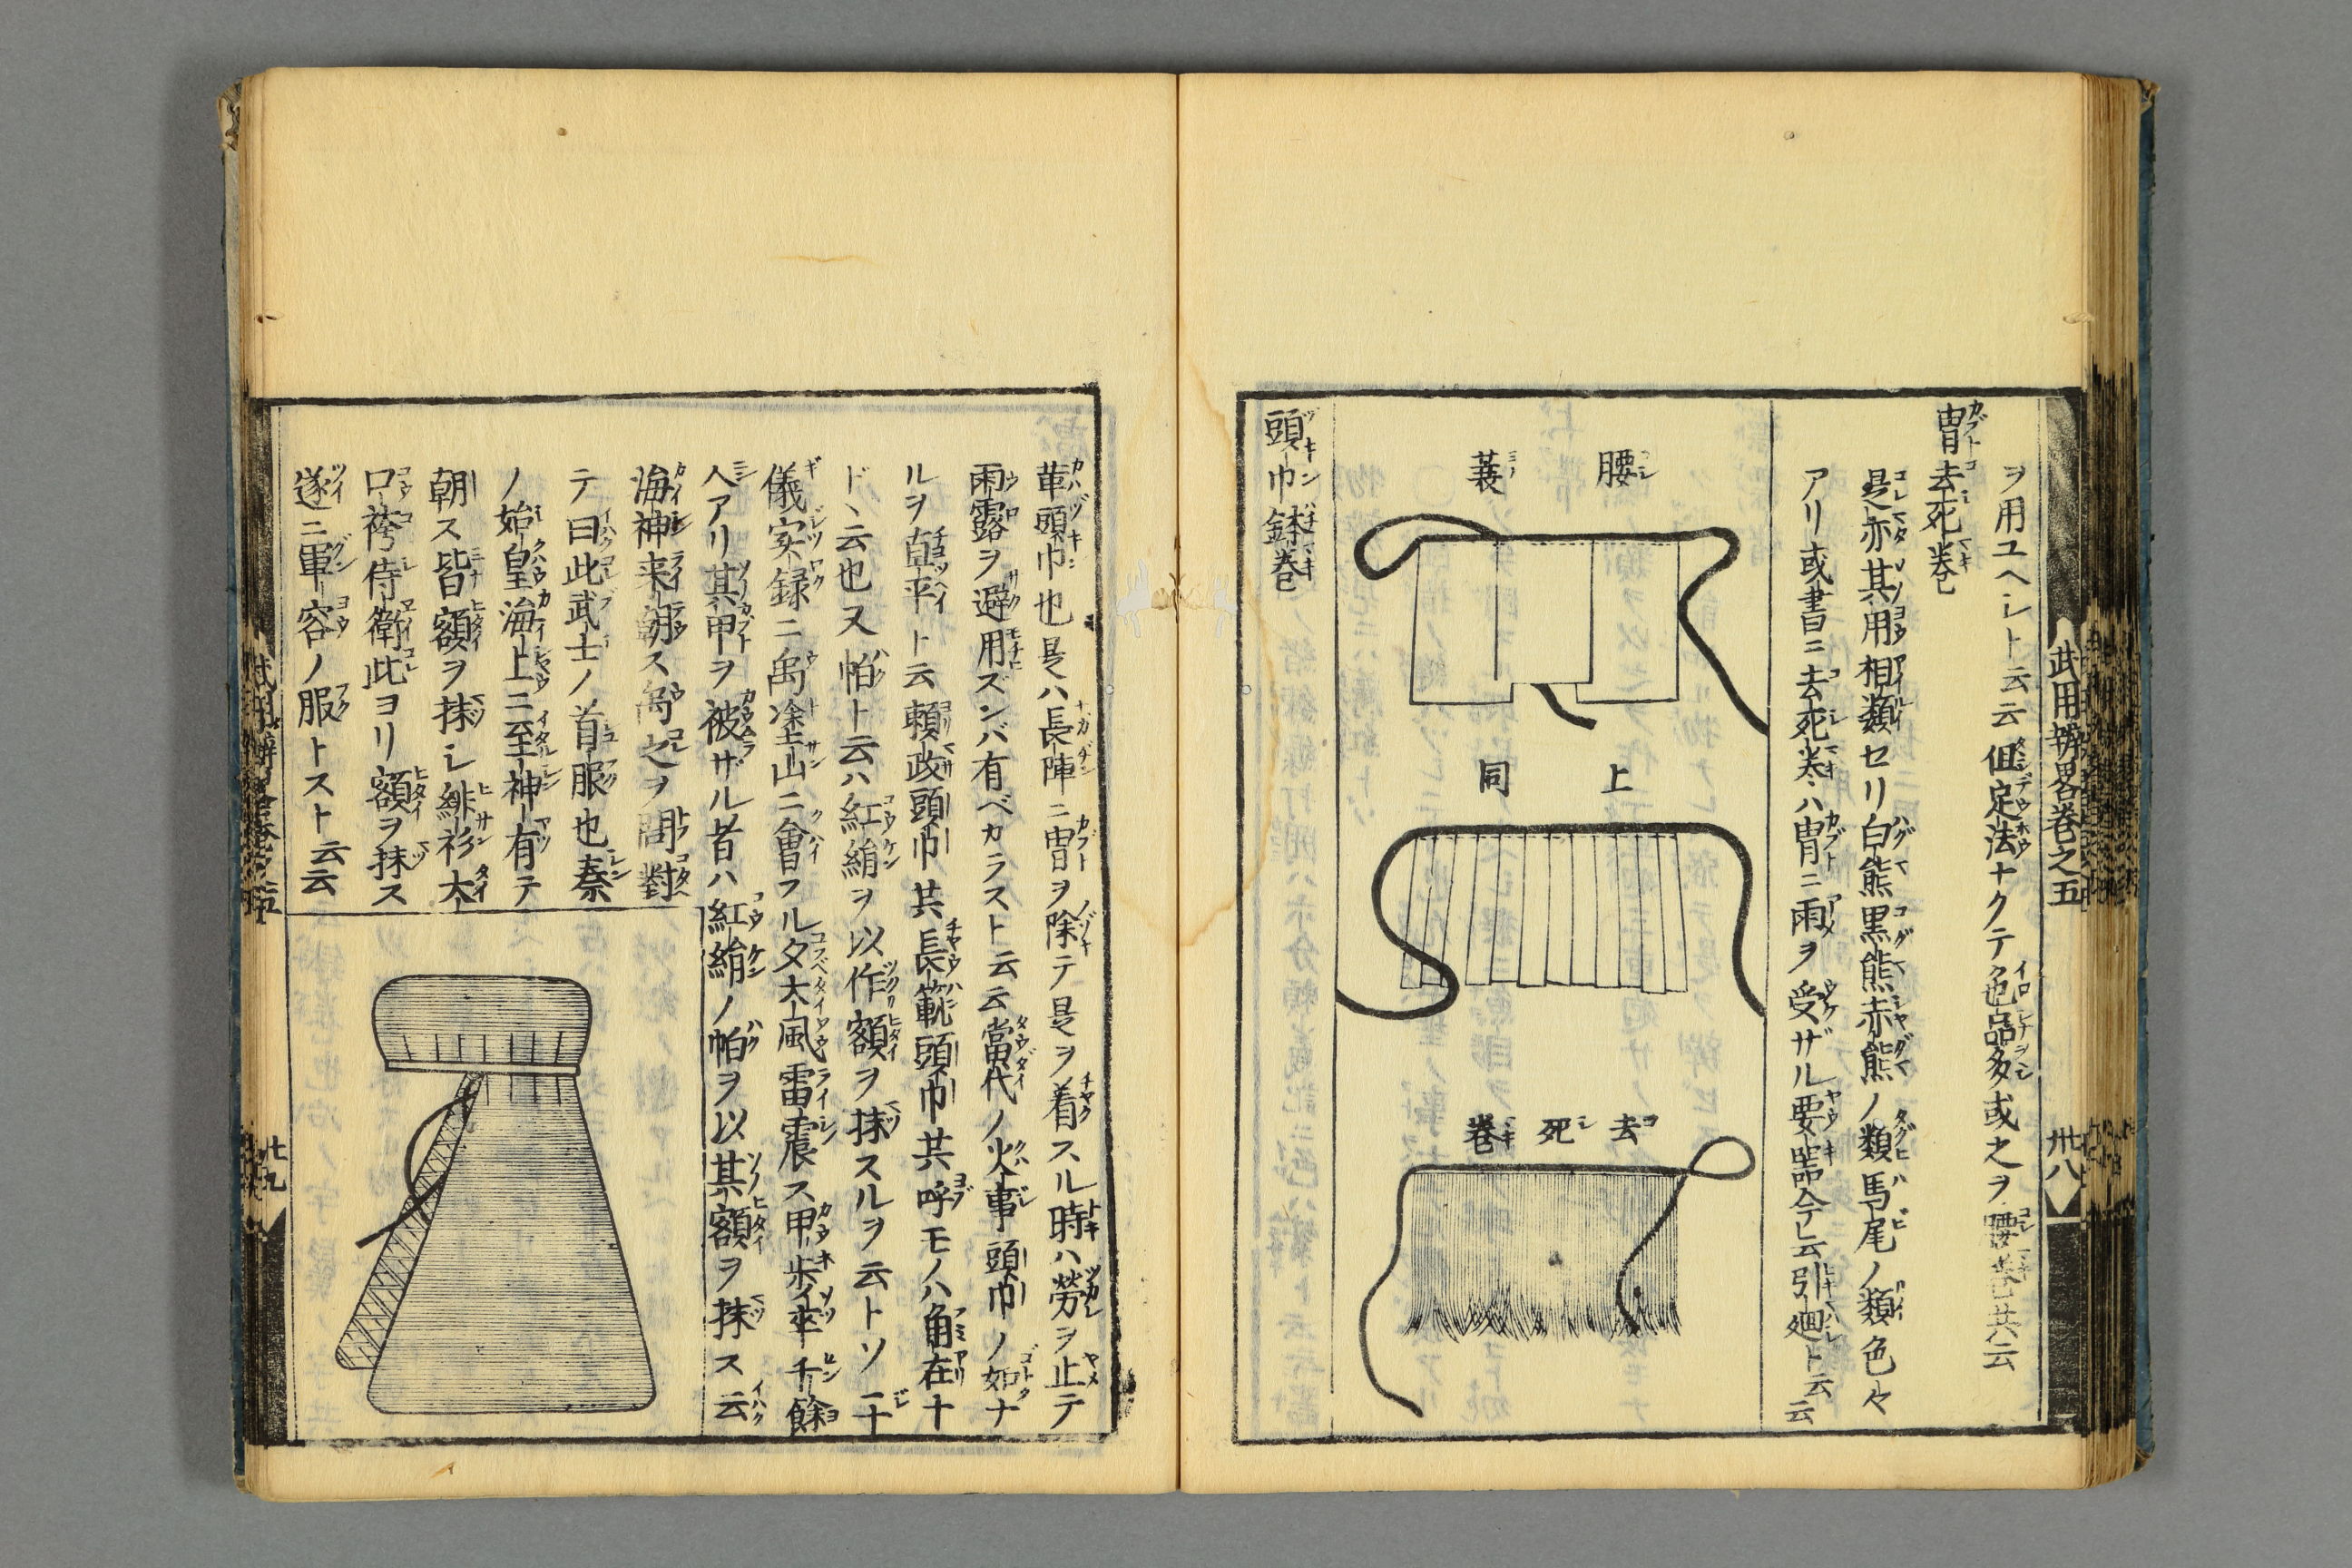 武用辨畧巻之五
卅八
ヲ用ユヘシト云云但定法ナクテ色品多或之ヲ腰巻共云
冑去死巻
是亦其用相類セリ白熊黒熊赤熊ノ類馬尾ノ類色々
アリ或書ニ去死巻ハ冑ニ雨ヲ受ザル要噐今レ云引廻ト云云
腰蓑
同上
去死巻
頭巾鉢巻
革頭巾也是ハ長陣ニ冑ヲ除テ是ヲ着スル時ハ勞ヲ止テ
雨露ヲ避用ズンバ有ベカラスト云云當代ノ火事頭巾ノ如ナ
ルヲ直平ト云頼政頭巾共長範頭巾共呼モノハ角在十
ド、云也又帕ト云ハ紅絹ヲ以作額ヲ抹スルヲ云トソ二十
儀実録ニ禹塗山ニ會フル夕大風雷震ス甲歩卒千餘
人アリ其甲ヲ被ザル者ハ紅絹ノ帕ヲ以其額ヲ抹ス云
海神来朝ス禹之ヲ問對
テ曰此武士ノ首服也秦
ノ始皇海上ニ至神有テ
朝ス皆額ヲ抹シ緋衫大
口袴侍衛此ヨリ額ヲ抹ス
遂ニ軍容ノ服トスト云云
卅九